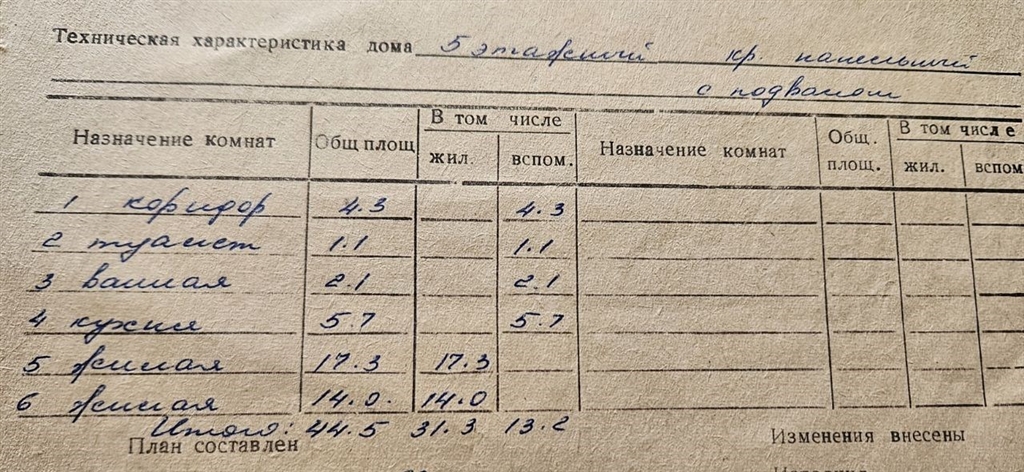 Техническая характеристика дома 5 этажный кр. панельный
с подвалом
Назначение комнат Общ площ В том числе Назначение комнат Общ. площ. В том числе
жил. вспом. жил. вспом
1 коридор 4.3 4.3
2 туалет 1.1 1.1
3 ванная 2.1 2.1
4 кухня 5.7 5.7
5 жилая 17.3 17.3
6 жилая 14.0. 14.0
Итого: 44.5 31.3 13.2
План составлен Изменения внесены